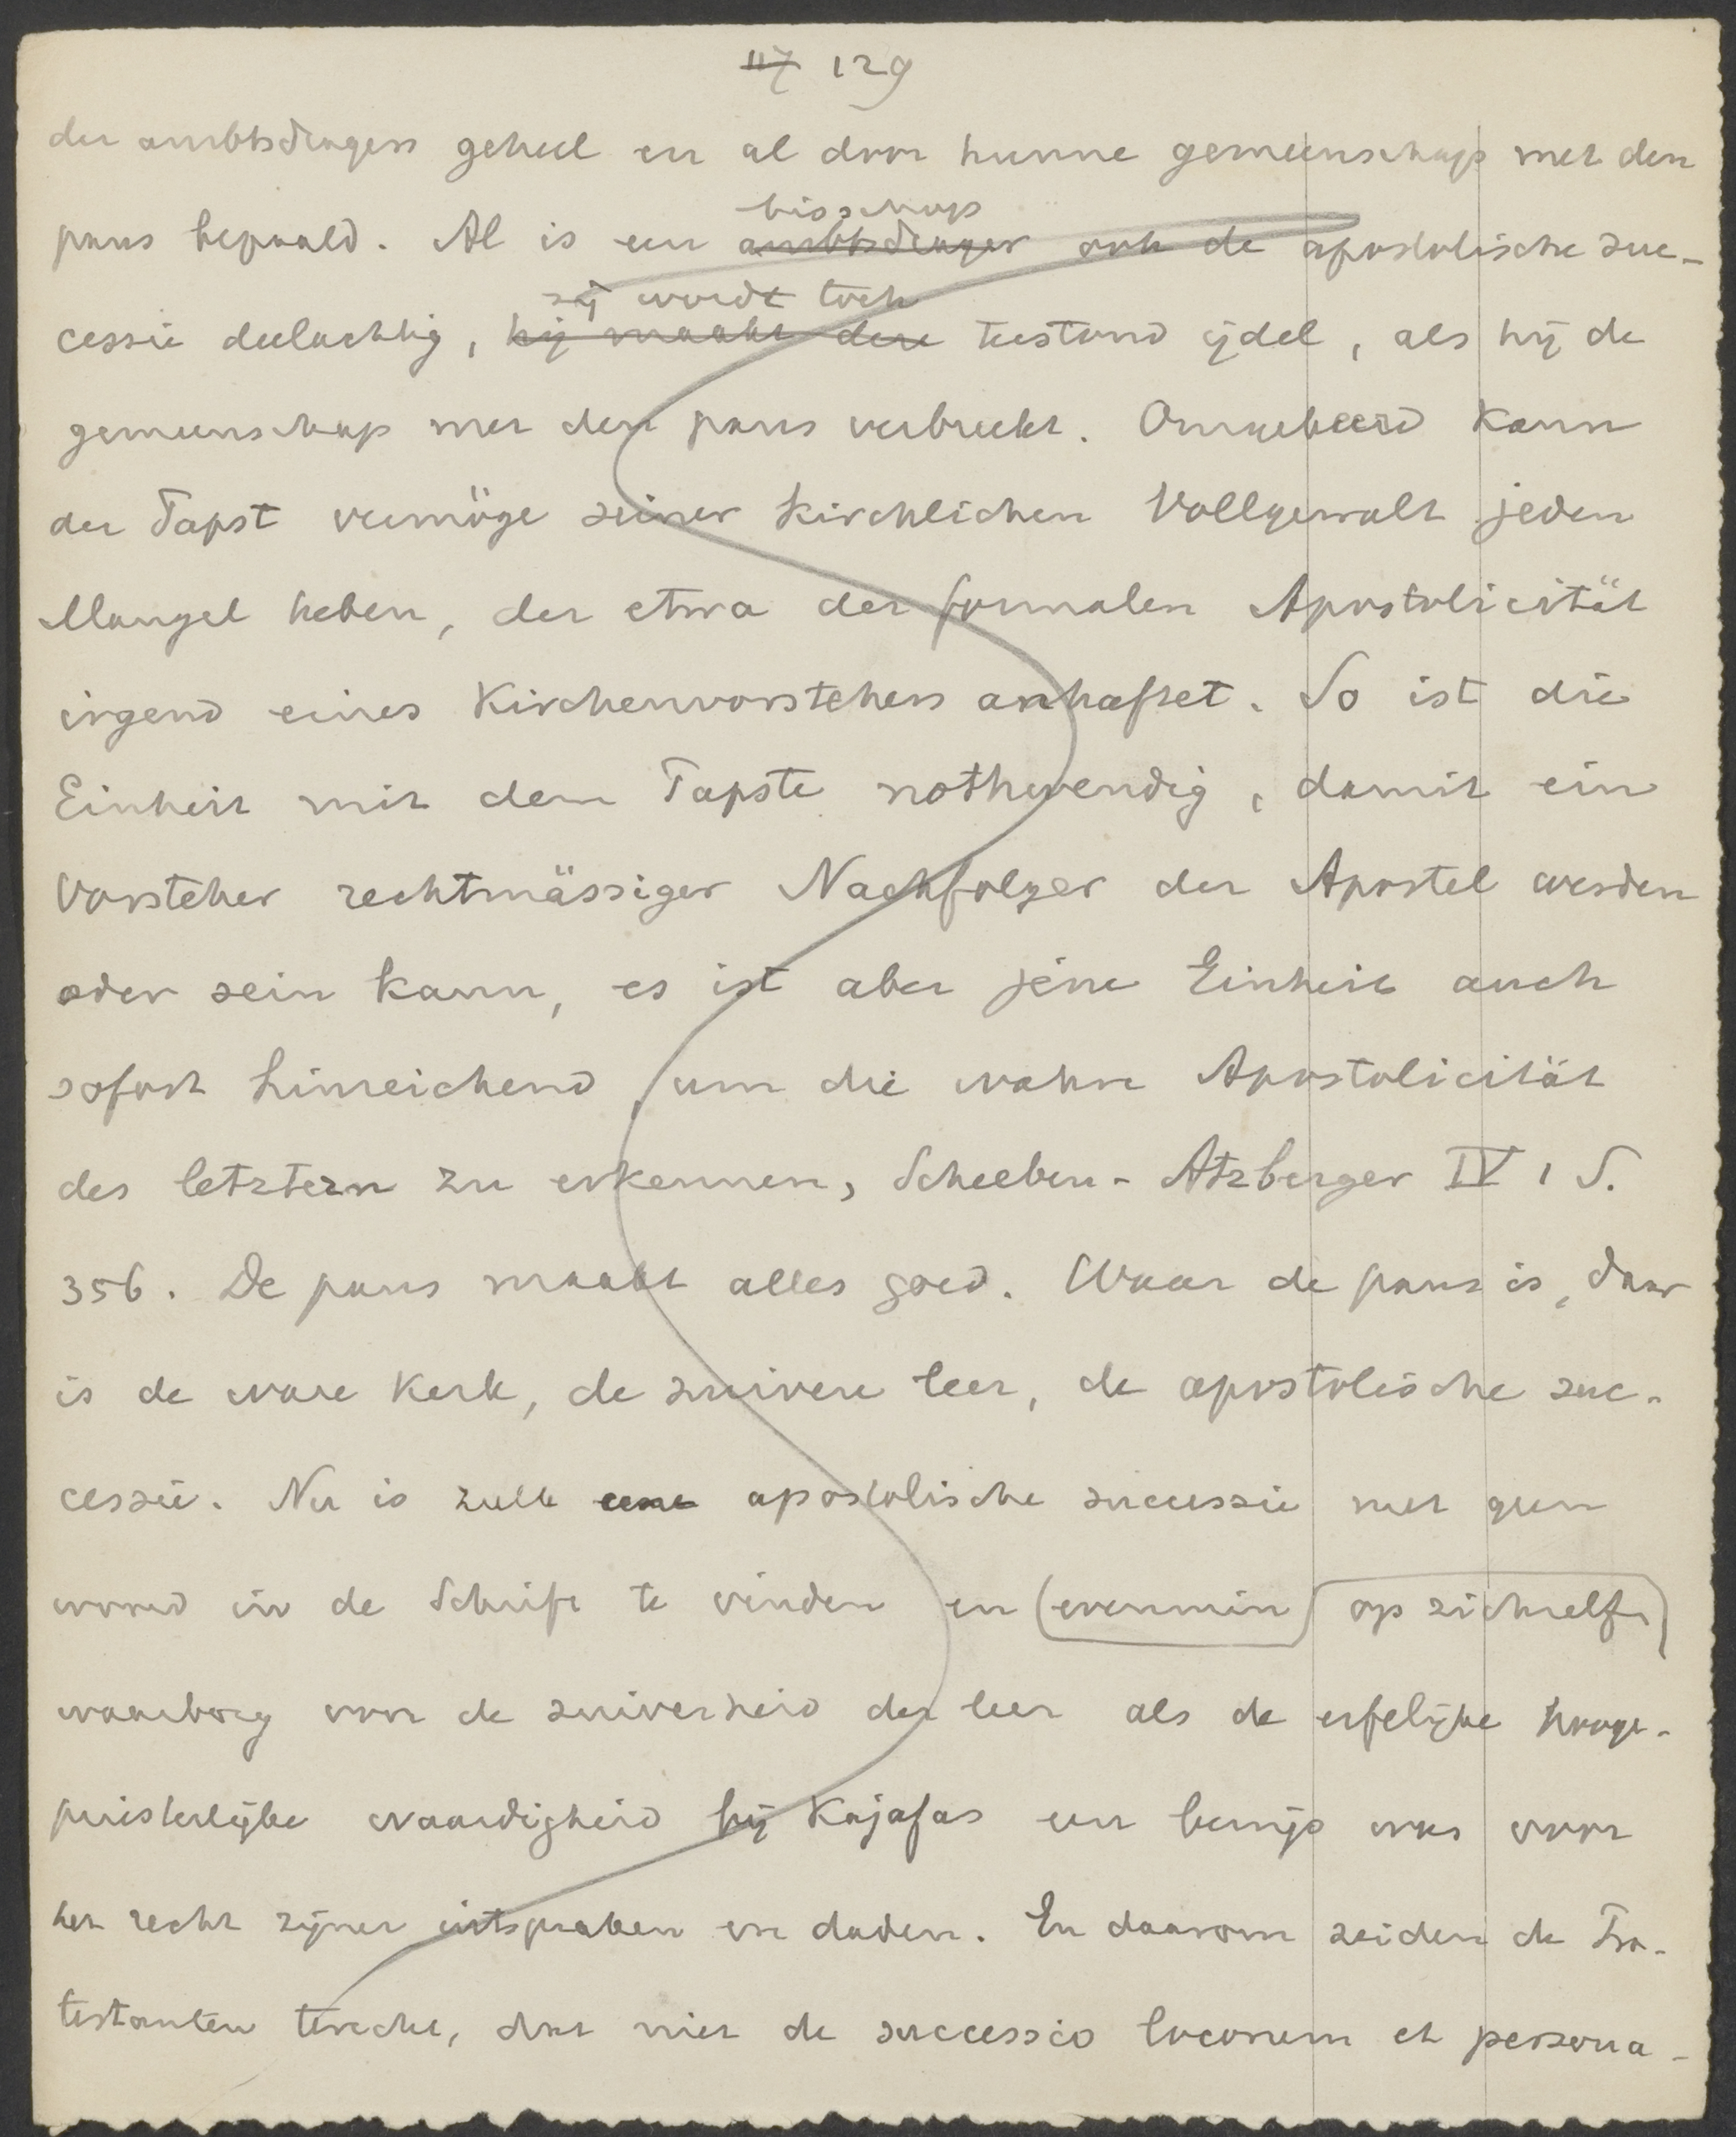 117 129
der ambtsdragers geheel en al door hunne gemeenschap met den
bisschop
paus bepaald. Al is een ambtsdrager ook de apostolische suc-
zij wordt toch
cessie deelachtig, hij maakt deze terstond ijdel, als hij de
gemeenschap met den paus verbreekt. Omgekeerd kann
der Papst vermöge seiner kirchlichen Vollgewalt jeden
Mangel heben, der etwa der formalen Apostolicität
irgend eines Kirchenvorstehers anhaftet. So ist die
Einheit mit dem Papste nothwendig, damit ein
Vorsteher rechtmässiger Nachfolger der Apostel werden
oder sein kann, es ist aber jene Einheit auch
sofort hinreichend, um die wahre Apostolicität
des letztern zu erkennen, Scheeben-Atzberger IV 1 S.
356. De paus maakt alles goed. Waar de paus is, daar
is de ware kerk, de zuivere leer, de apostolische suc-
cessie. Nu is zulk eene apostolische successie met geen
woord in de Schrift te vinden en (evenmin) op zichzelf
waarborg voor de zuiverheid der leer als de erfelijke hooge-
priesterlijke waardigheid bij Kajafas een bewijs was voor
het recht zijner uitspraken en daden. En daarom zeiden de Pro-
testanten terecht, dat niet de successio locorum et persona-